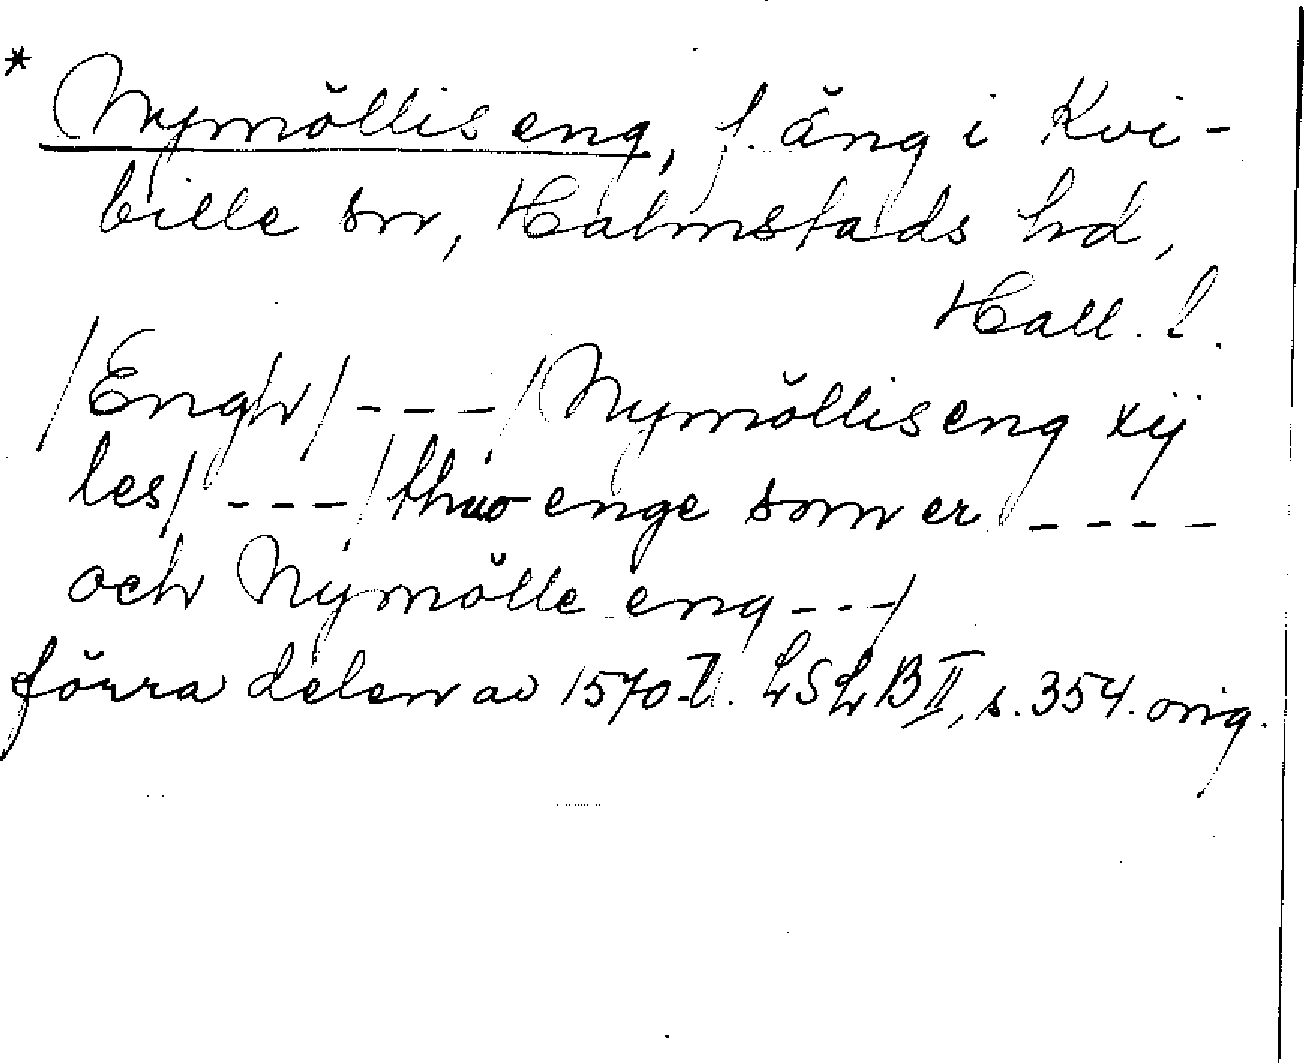 * Nymölliseng, f. äng i Kvi-
bille sn, Halmstads hd,
Hall. l.
/Engh/ - - - /Nymölliseng xij
les/ - - - /thuo enge som er - - - -
och Nymölle eng - - -/
förra delen av 1570-t. LSLB II, s. 354. orig.